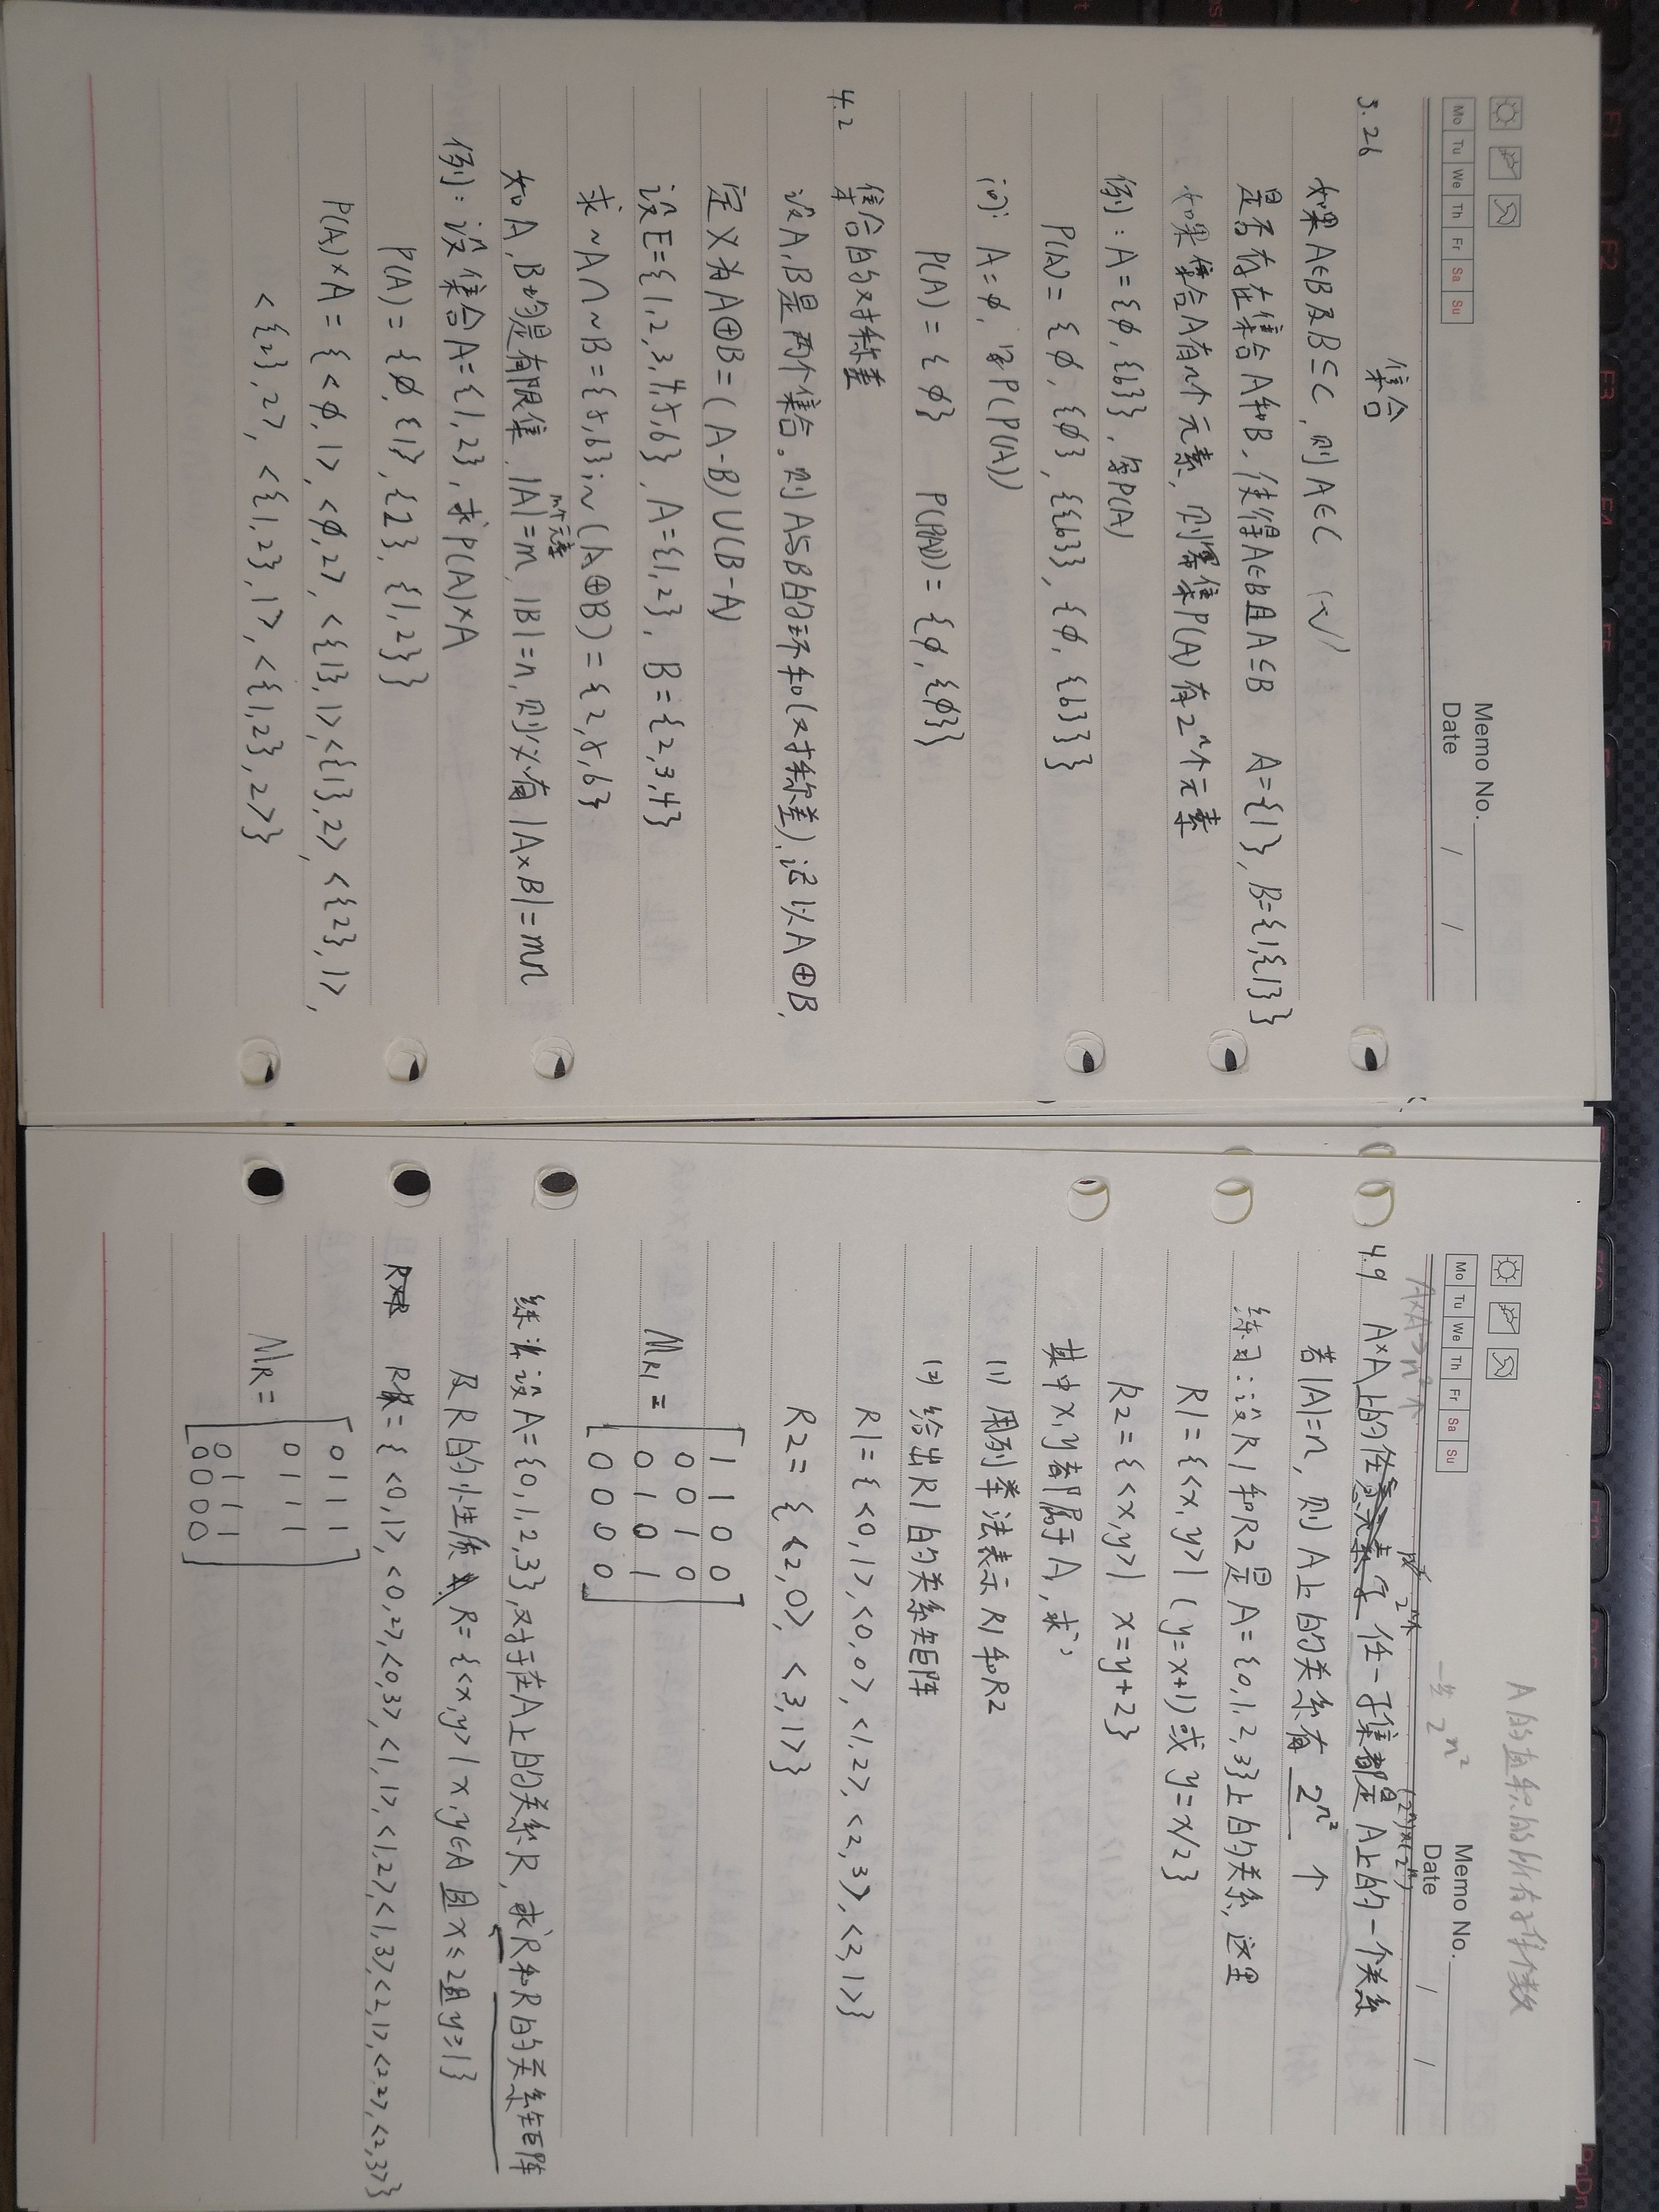 F1 F2 F3 F4 F5
Mo Tu We Th Fr Sa Su
Memo No.
Date / /
集合
3.26
如果A∈B及B⊆C，则A∈C （√）
是否存在集合A和B，使得A∈B且A⊆B A={1}, B={1,{1}}
如果集合A有n个元素，则幂集P(A)有2^n个元素
例：A={∅,{b}}，写P(A)
P(A)={∅,{∅},{{b}},{∅,{b}}}
问：A=∅，写P(P(A))
P(A)={∅} P(P(A))={∅,{∅}}
4.2 集合的对称差
设A,B是两个集合。则A与B的环和(对称差)，记以A⊕B，
定义为A⊕B=(A-B)∪(B-A)
设E={1,2,3,4,5,6}，A={1,2}，B={2,3,4}
求~A∩~B={5,6};~(A⊕B)={2,5,6}
m个元素
如A,B均是有限集，|A|=m，|B|=n，则必有|A×B|=mn
例：设集合A={1,2}，求P(A)×A
P(A)={∅,{1},{2},{1,2}}
P(A)×A={<∅,1>,<∅,2>,<{1},1>,<{1},2>,<{2},1>,
<{2},2>,<{1,2},1>,<{1,2},2>}
F10 F11 F12 PgDn
A的直积的所有子集个数
Mo Tu We Th Fr Sa Su
一共 2^n²
Memo No.
Date / /
A×A→n²个
2^n个 (2^n)×(2^n)
4.9 A×A上的任意元素字 任一子集都是A上的一个关系
若|A|=n，则A上的关系有 2^n² 个
练习：设R1和R2是A={0,1,2,3}上的关系，这里
R1={<x,y>| (y=x+1)或y=x/2}
R2={<x,y>| x=y+2}
其中x,y都属于A，求：
(1) 用列举法表示R1和R2
(2) 给出R1的关系矩阵
R1={<0,1>,<0,0>,<1,2>,<2,3>,<2,1>}
R2={<2,0>,<3,1>}
M_R1=
1 1 0 0
0 0 1 0
0 1 0 1
0 0 0 0
练：设A={0,1,2,3}，对于在A上的关系R，求R和R的关系矩阵
及R的性质 R={<x,y>|x,y∈A且x≤2且y≥1}
R={<0,1>,<0,2>,<0,3>,<1,1>,<1,2>,<1,3>,<2,1>,<2,2>,<2,3>}
M_R=
0 1 1 1
0 1 1 1
0 1 1 1
0 0 0 0